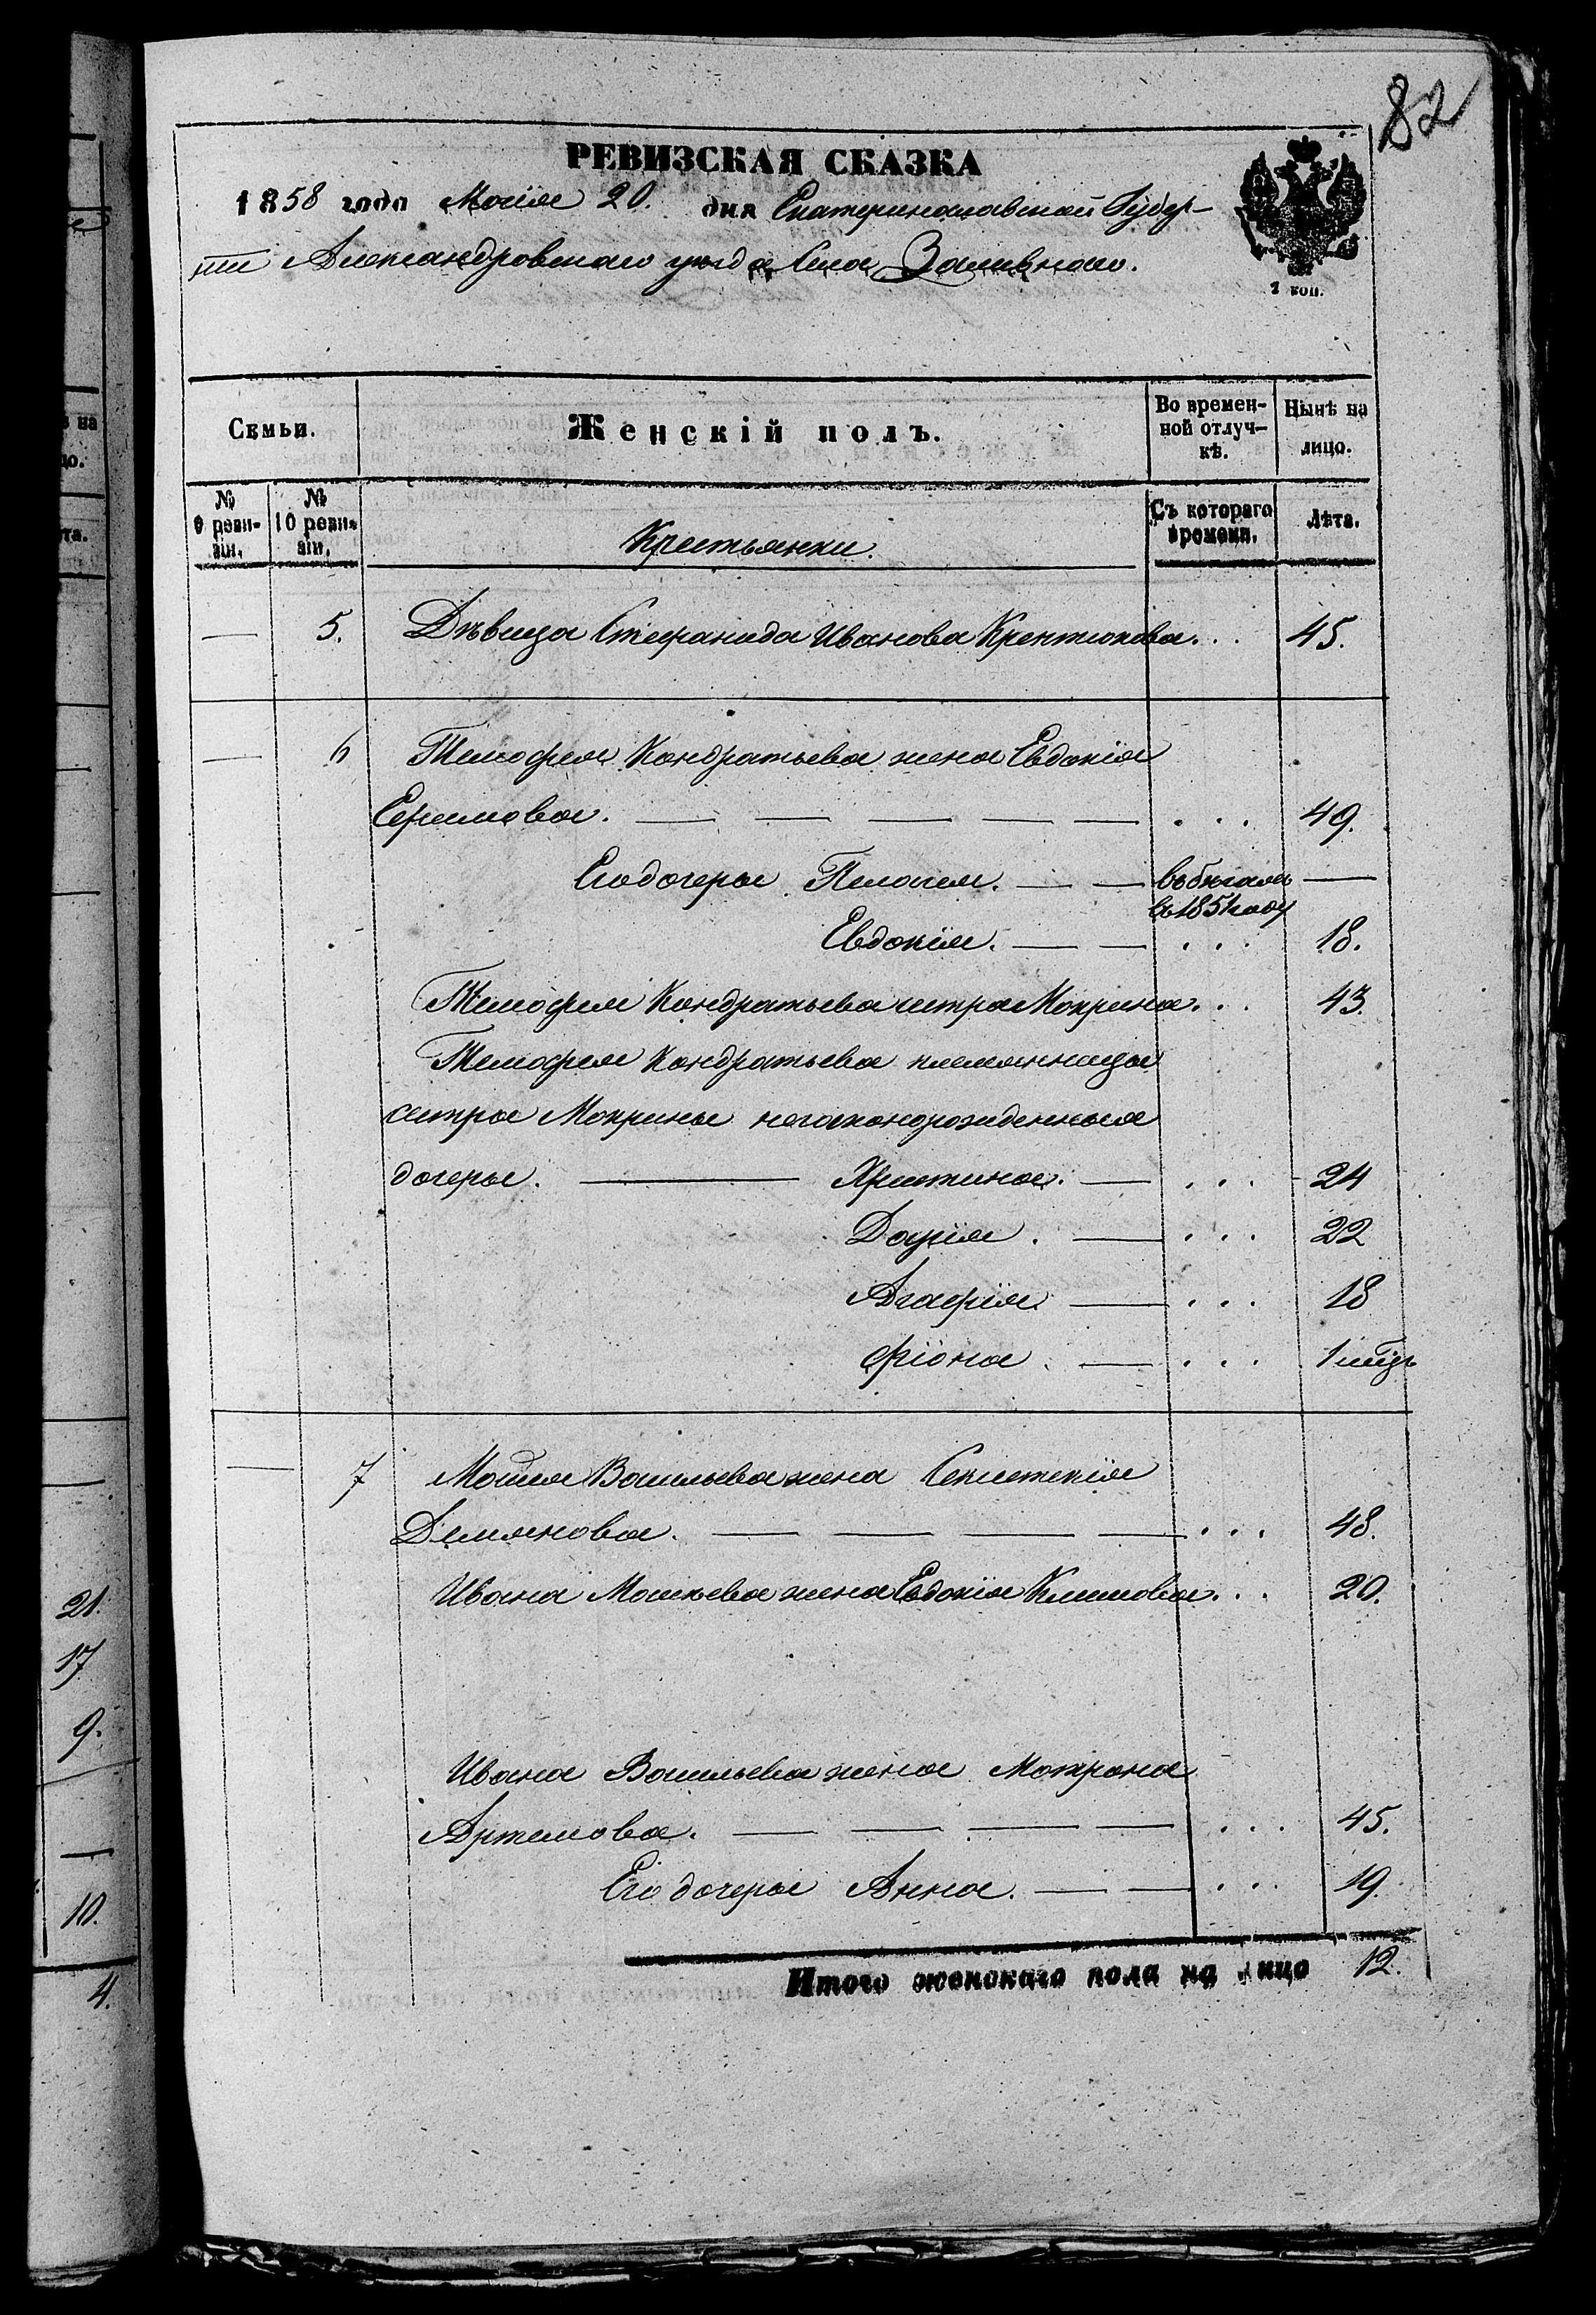 82
РЕВИЗСКАЯ СКАЗКА
1858 года Маія 20. дня Екатеринославской Губер-
ніи Александровскаго уѣзда Села Заливнаго.
1 коп.
Семьи. Женскій полъ. Во времен-ной отлуч-кѣ. Нынѣ на лицо.
№ 9 реви-зіи. № 10 реви-зіи. Крестьянки. Съ котораго времени. Лѣта.
— 5. Дѣвица Стефанида Иванова 45.
— 6 Тимофея Кондратьева жена Евдокія
Ефимова. — — — — — . . . 49.
Его дочеры Пелагея. — — въ бѣгахъ съ 1851 году —
Евдокія. — — . . . 18.
Тимофея Кондратьева сестра Мокрина. . . 43.
Тимофея Кондратьева племянницы
сестры Мокрины незаконорожденныя
дочеры. — Христина. — . . . 24
Дофія. — . . . 22
Агафія. — . . . 18
Фіона. — . . . 1 мѣсць
— 7 Мосея Васильева жена
Демянова. — — — — . . . 48.
Ивана Мосиева жена Евдокія Климова. . . 20.
Ивана Васильева жена Мотрона
Артемова. — — — — . . . 45.
Его дочеры Анна. — — . . . 19.
Итого женскаго пола на лицо 12.
на
цо.
та.
21.
17
9.
—
10.
4.